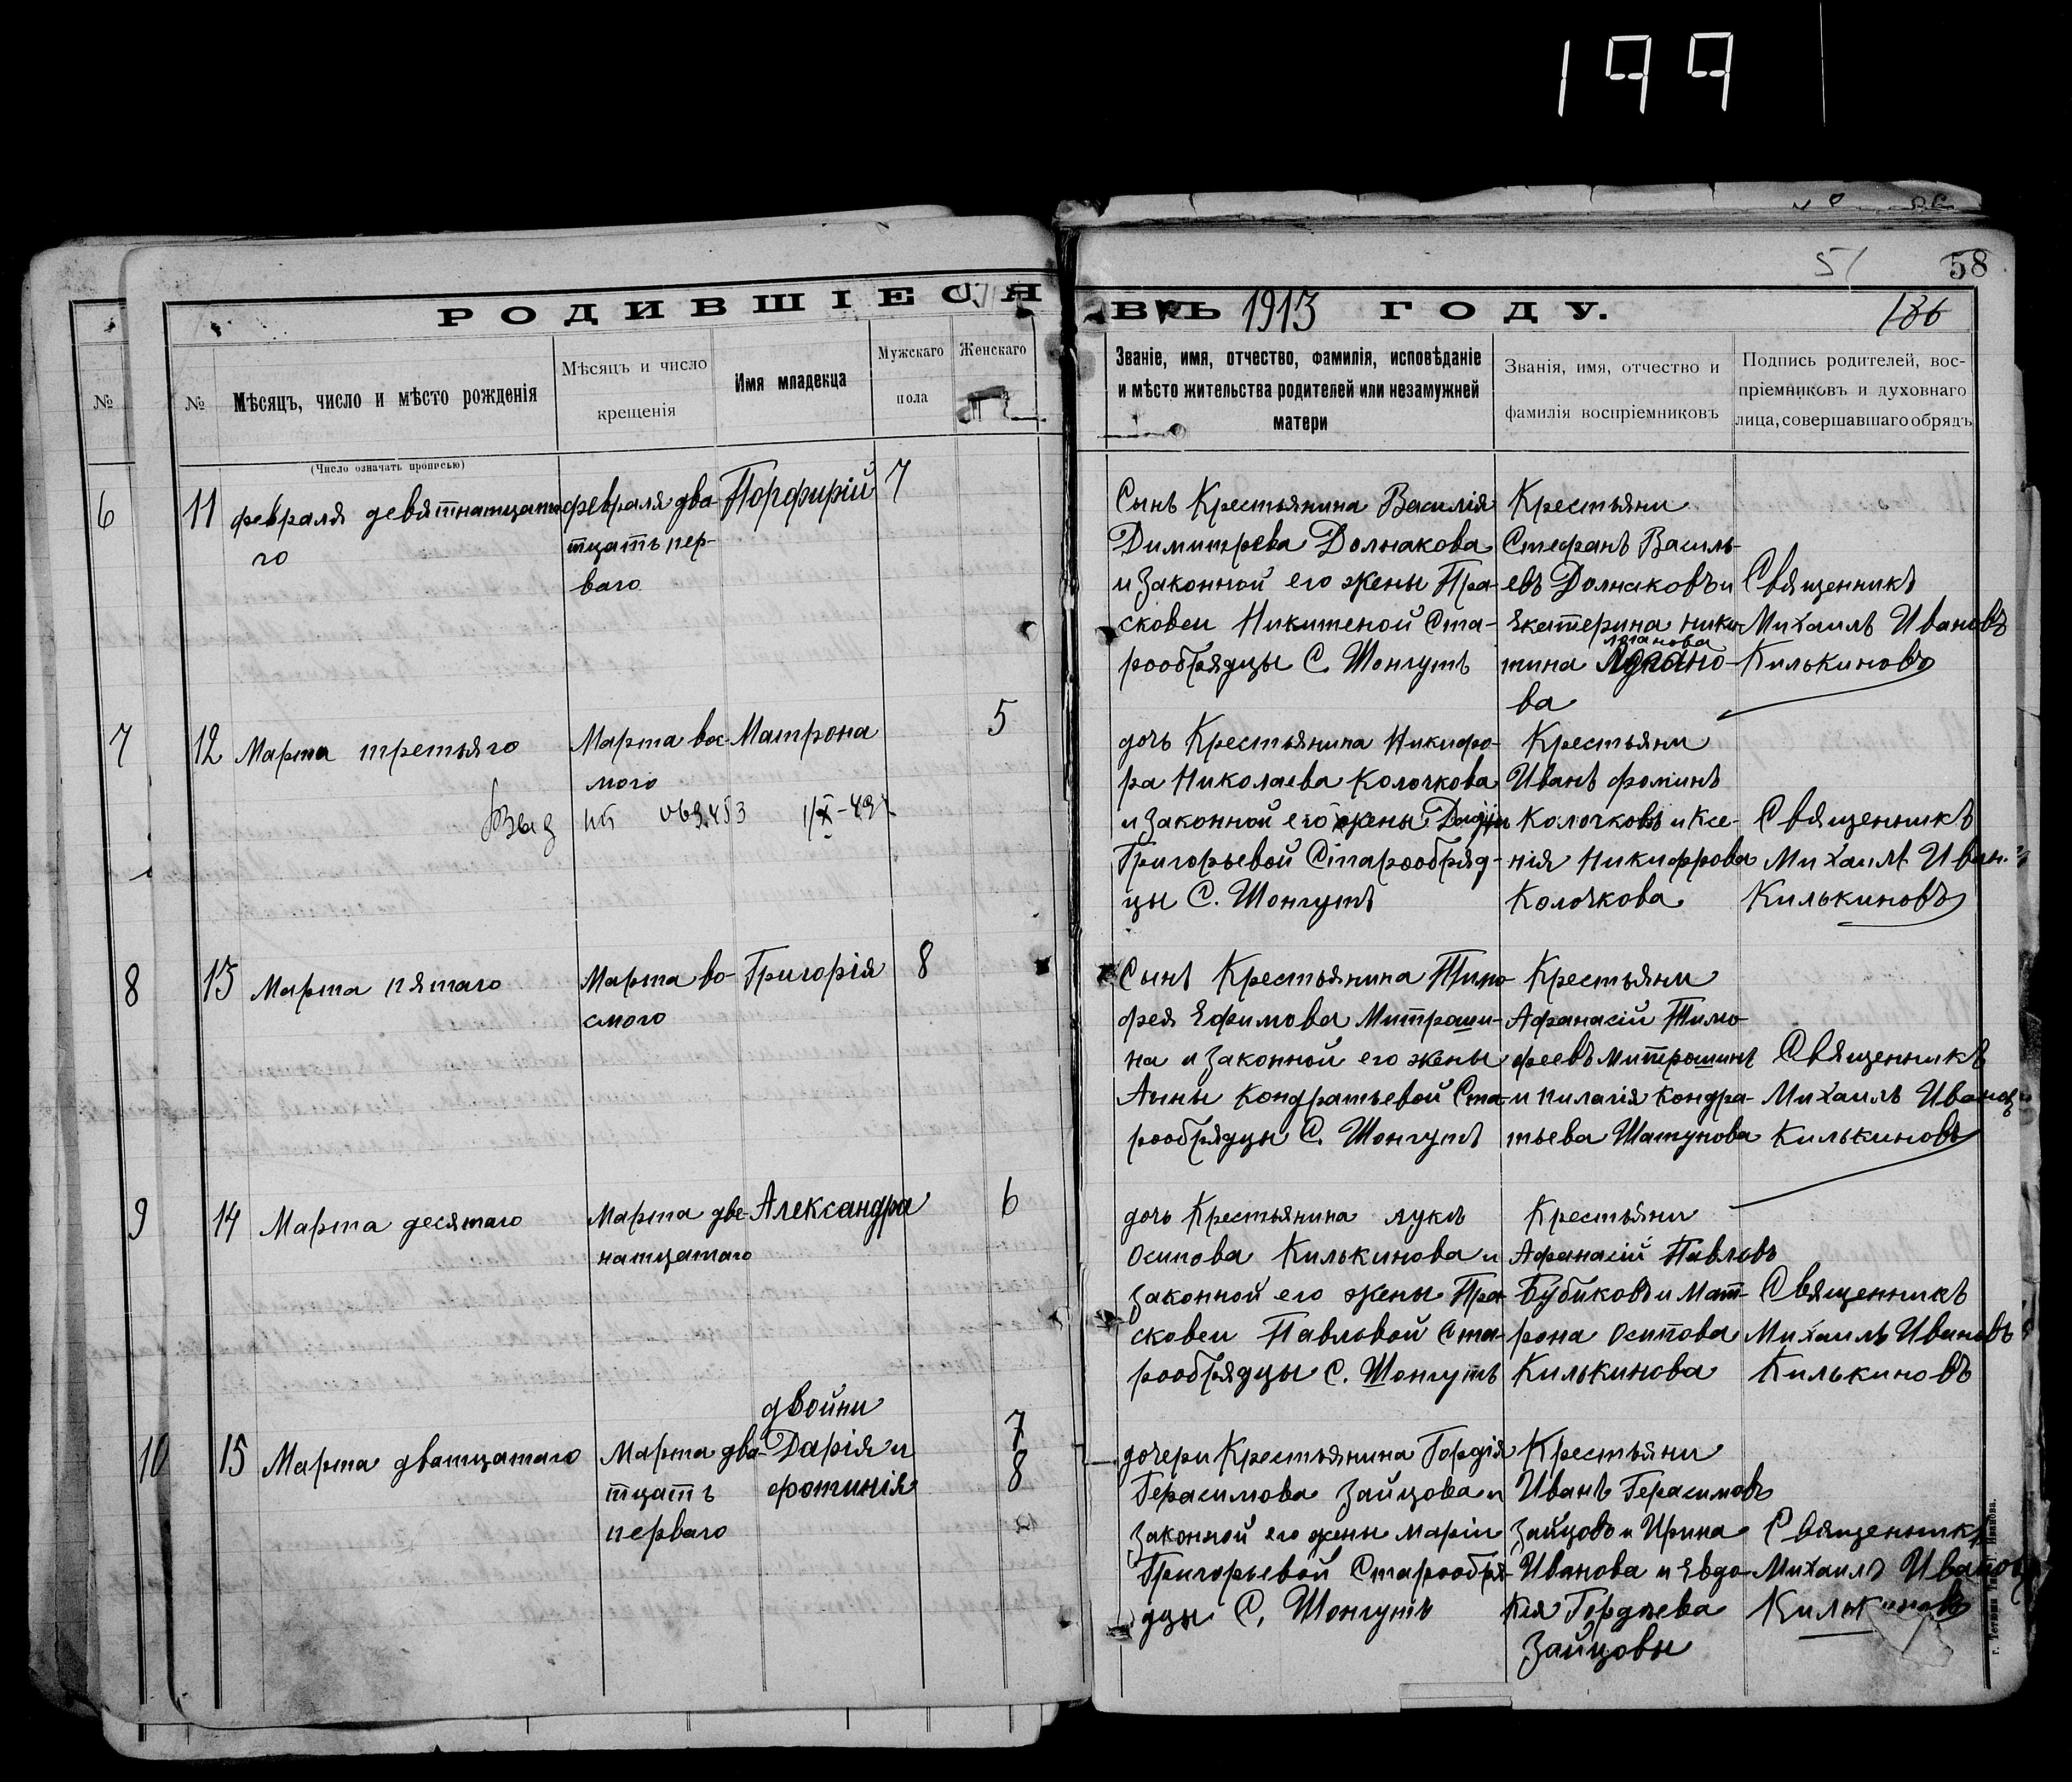 199
51
58
РОДИВШІЕСЯ
ВЪ 1913 ГОДУ.
186
№
№
Мѣсяцъ, число и мѣсто рожденія
(Число означать прописью)
Мѣсяцъ и число
крещенія
Имя младенца
Мужскаго
пола
Женскаго
Званіе, имя, отчество, фамилія, исповѣданіе
и мѣсто жительства родителей или незамужней
матери
Званія, имя, отчество и
фамилія воспріемниковъ
Подпись родителей, вос-
пріемниковъ и духовнаго
лица, совершавшаго обрядъ
6
11
февраля девятнатцата
го
февраля два-
тцать пер-
ваго
Порфирій
7
Сынъ Крестьянина Василія
Димитрева Долнакова
и Законной его жены Пра-
сковеи Никитеной Ста-
рообрядцы С. Шонгутъ
Крестьяни
Стефанъ Василь-
евъ Долнаковъ и
Екатерина Ники-
тина
ва
Священникъ
Михаилъ Ивановъ
Килькиновъ
7
12
Марта третьяго
Марта вос-
мого
Матрона
5
069.453
дочь Крестьянина Никифо-
ра Николаева Колочкова
и Законной его жены
Григорьевой Старообряд-
цы С. Шонгутъ
Крестьяни
Иванъ фоминъ
Колочковъ и Ксе-
нія Никифрова
Колочкова
Священникъ
Михаилъ Иван.
Килькиновъ
8
13
Марта пятаго
Марта во-
смого
Григорія
8
Сынъ Крестьянина Тимо
фея Ефимова Митроши-
на и Законной его жены
Анны Кондратьевой Ста-
рообрядцы С. Шонгутъ
Крестьяни
Афанасій Тимо-
феевъ Митрошинъ
и пилагія Кондра-
тьева Шатунова
Священникъ
Михаилъ Иванов
Килькиновъ
9
14
Марта десятаго
Марта две-
натцатаго
Александра
6
дочь Крестьянина луки
Осипова Килькинова и
Законной его жены Пра-
сковеи Павловой Ста-
рообрядцы С. Шонгутъ
Крестьяни
Афанасій Павловъ
Бубиковъ и Мат-
рона Осипова
Килькинова
Священникъ
Михаилъ Ивановъ
Килькиновъ
10
15
Марта дватцатаго
Марта два-
тцать
перваго
двойни
Дарія и
фотинія
7
8
дочери Крестьянина Гордія
Герасимова Зайцова и
Законной его жены Маріи
Григорьевой Старообря-
дцы С. Шонгутъ
Крестьяни
Иванъ Герасимовъ
Зайцовъ и Ирина
Иванова и Евдо-
кія Гордѣева
Зайцовы
Священникъ
Михаилъ Иванов
Килькиновъ